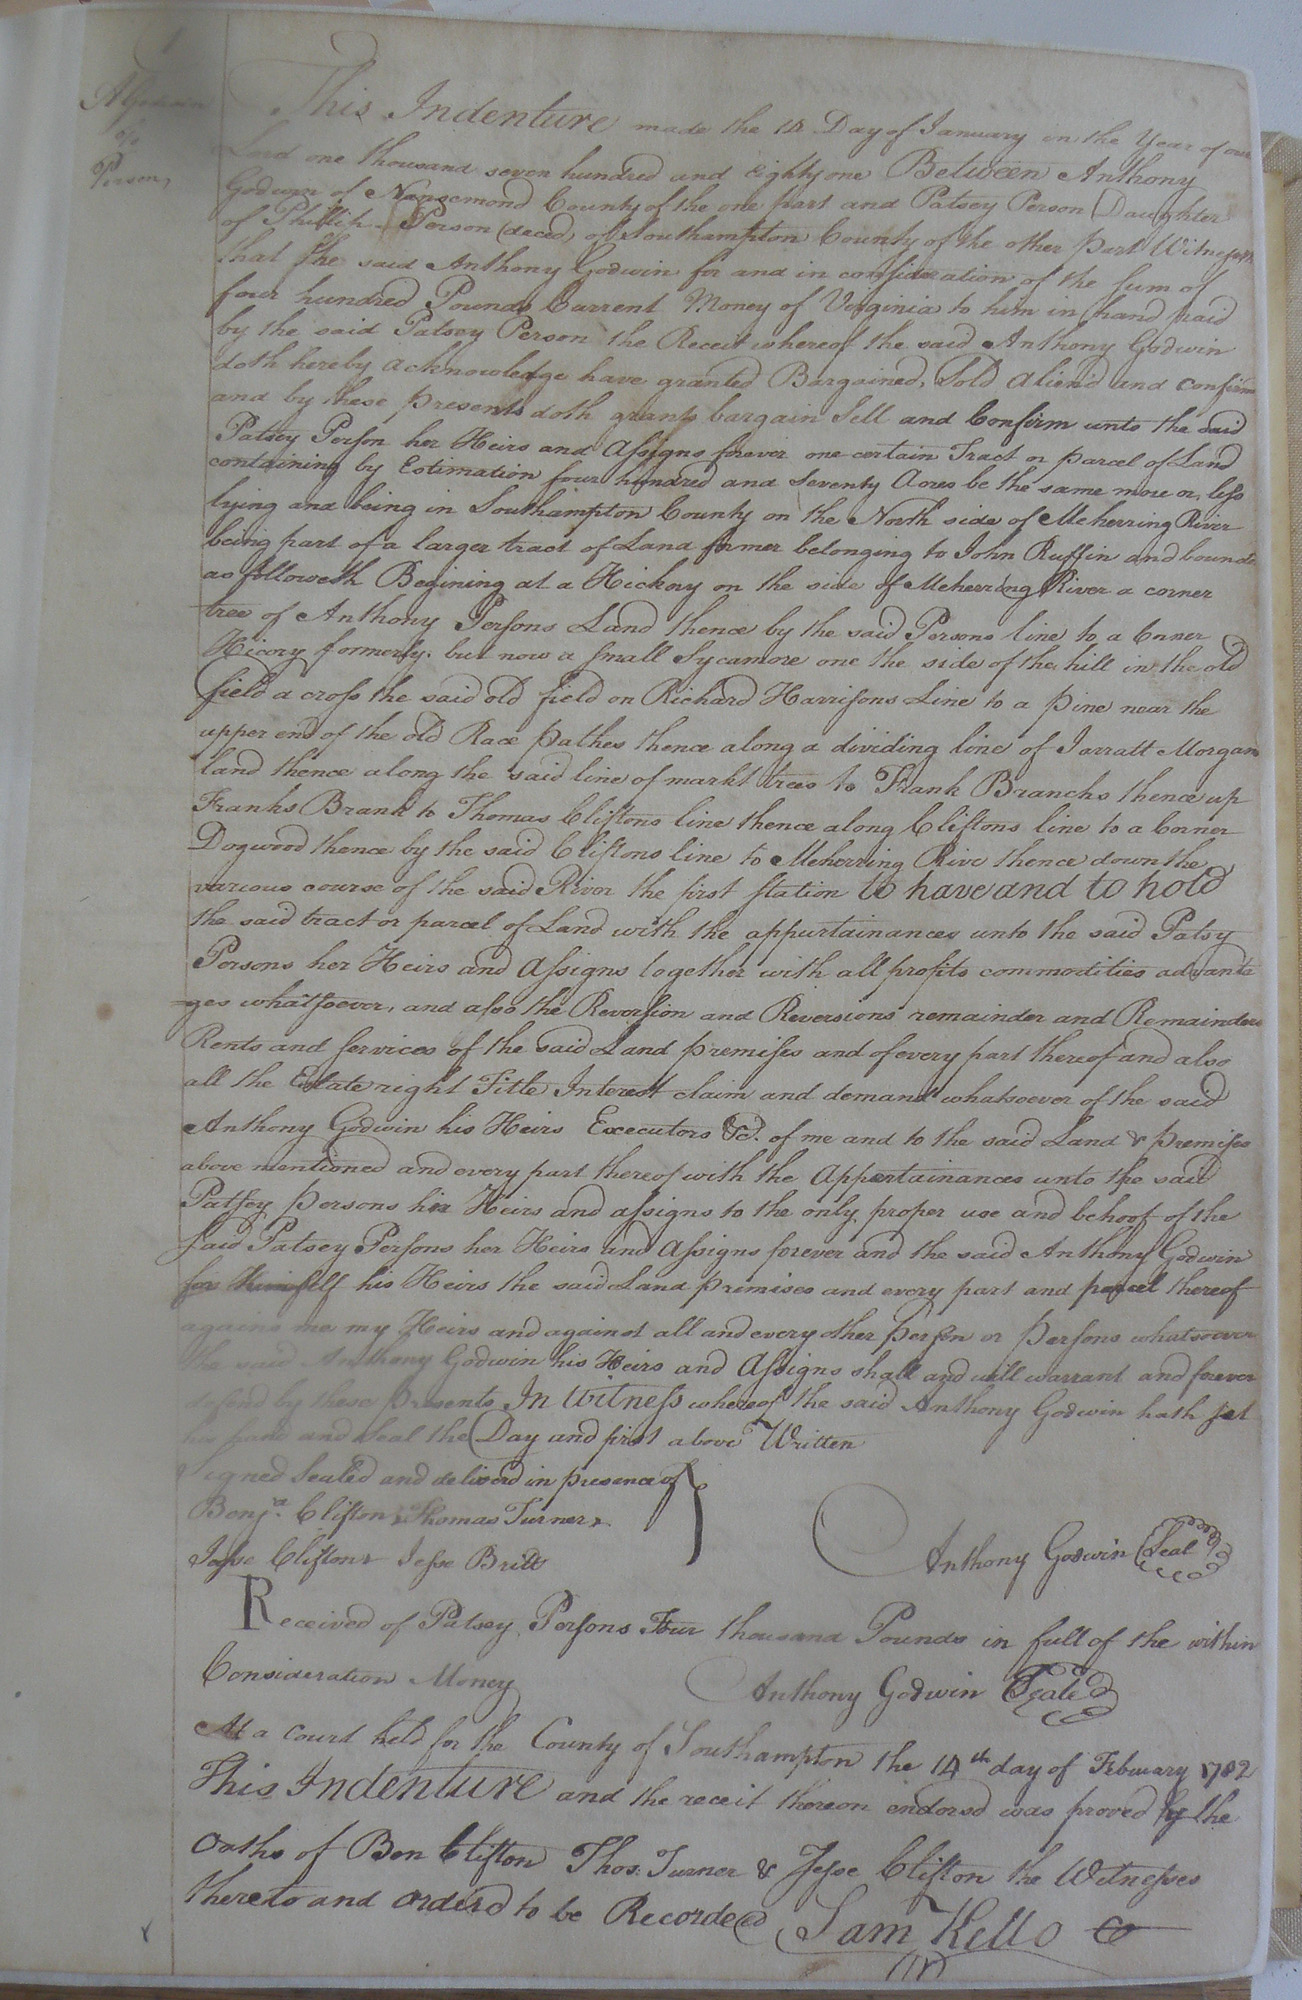 1
AGodwin
to
Person,
This Indenture made the 14 Day of January in the Year of our
Lord one thousand seven hundred and Eighty one Between Anthony
Godwin of Nansemond County of the one part and Patsey Person Daughter
of Phillip Person (deced) of Southampton County of the other part Witnesseth
that the said Anthony Godwin for and in consideration of the sum of
four hundred Pounds Current Money of Virginia to him in hand paid
by the said Patsey Person the Receit whereof the said Anthony Godwin
doth hereby acknowledge have granted Bargained, Sold aliend and confirm
and by these presents doth grant bargain Sell and Confirm unto the said
Patsey Person her Heirs and Assigns forever one certain Tract or parcel of Land
containing by Estimation four hundred and Seventy Acres be the same more or less
lying and being in Southampton County on the North side of Meherring River
being part of a larger tract of Land former belonging to John Ruffin and bounds
as followeth Begining at a Hickory on the side of Meherring River a corner
tree of Anthony Persons Land thence by the said Persons line to a Corner
Hicory formerly. but now a small Sycamore one the side of the hill in the old
field a cross the said old field on Richard Harrisons Line to a pine near the
upper end of the old Race pathes thence along a dividing line of Jarratt Morgan
land thence along the said line of markt trees to Frank Branchs thence up
Franks Brank to Thomas Cliftons line thence along Cliftons line to a Corner
Dogwood thence by the said Cliftons line to Meherring Rive thence down the
various course of the said River the first station to have and to hold
the said tract or parcel of Land with the appurtainances unto the said Patsy
Persons her Heirs and Assigns together with all profits commodities advanta
ges whatsoever, and also the Reversion and Reversions remainder and Remainders
Rents and services of the said Land premises and of every part thereof and also
all the Estate right Title Interest claim and demand whatsoever of the said
Anthony Godwin his Heirs Executors &c. of me and to the said Land & premises
above mentioned and every part thereof with the Appertainances unto the said
Patsey Persons her Heirs and assigns to the only proper use and behoof of the
said Patsey Persons her Heirs and Assigns forever and the said Anthony Godwin
for Himself his Heirs the said Land primises and every part and parcel thereof
agains me my Heirs and against all and every other Person or Persons whatsoever
the said Anthony Godwin his Heirs and Assigns shall and will warrant and forever
defend by these presents In Witness whereof the said Anthony Godwin hath set
his hand and Seal the Day and first above Written
Signed Sealed and deliverd in presence of
Benja. Clifton, Thomas Turner,
Jesse Clifton Jesse Britt
Anthony Godwin Seal
Received of Patsey Persons Four thousand Pounds in full of the within
Consideration Money
Anthony Godwin Seale
At a court held for the County of Southampton the 14th day of February 1782
This Indenture and the receit thereon endorsd was proved by the
Oaths of Ben Clifton Thos. Turner & Jesse Clifton the Witnesses
thereto and orderd to be Recorded
Sam Kello